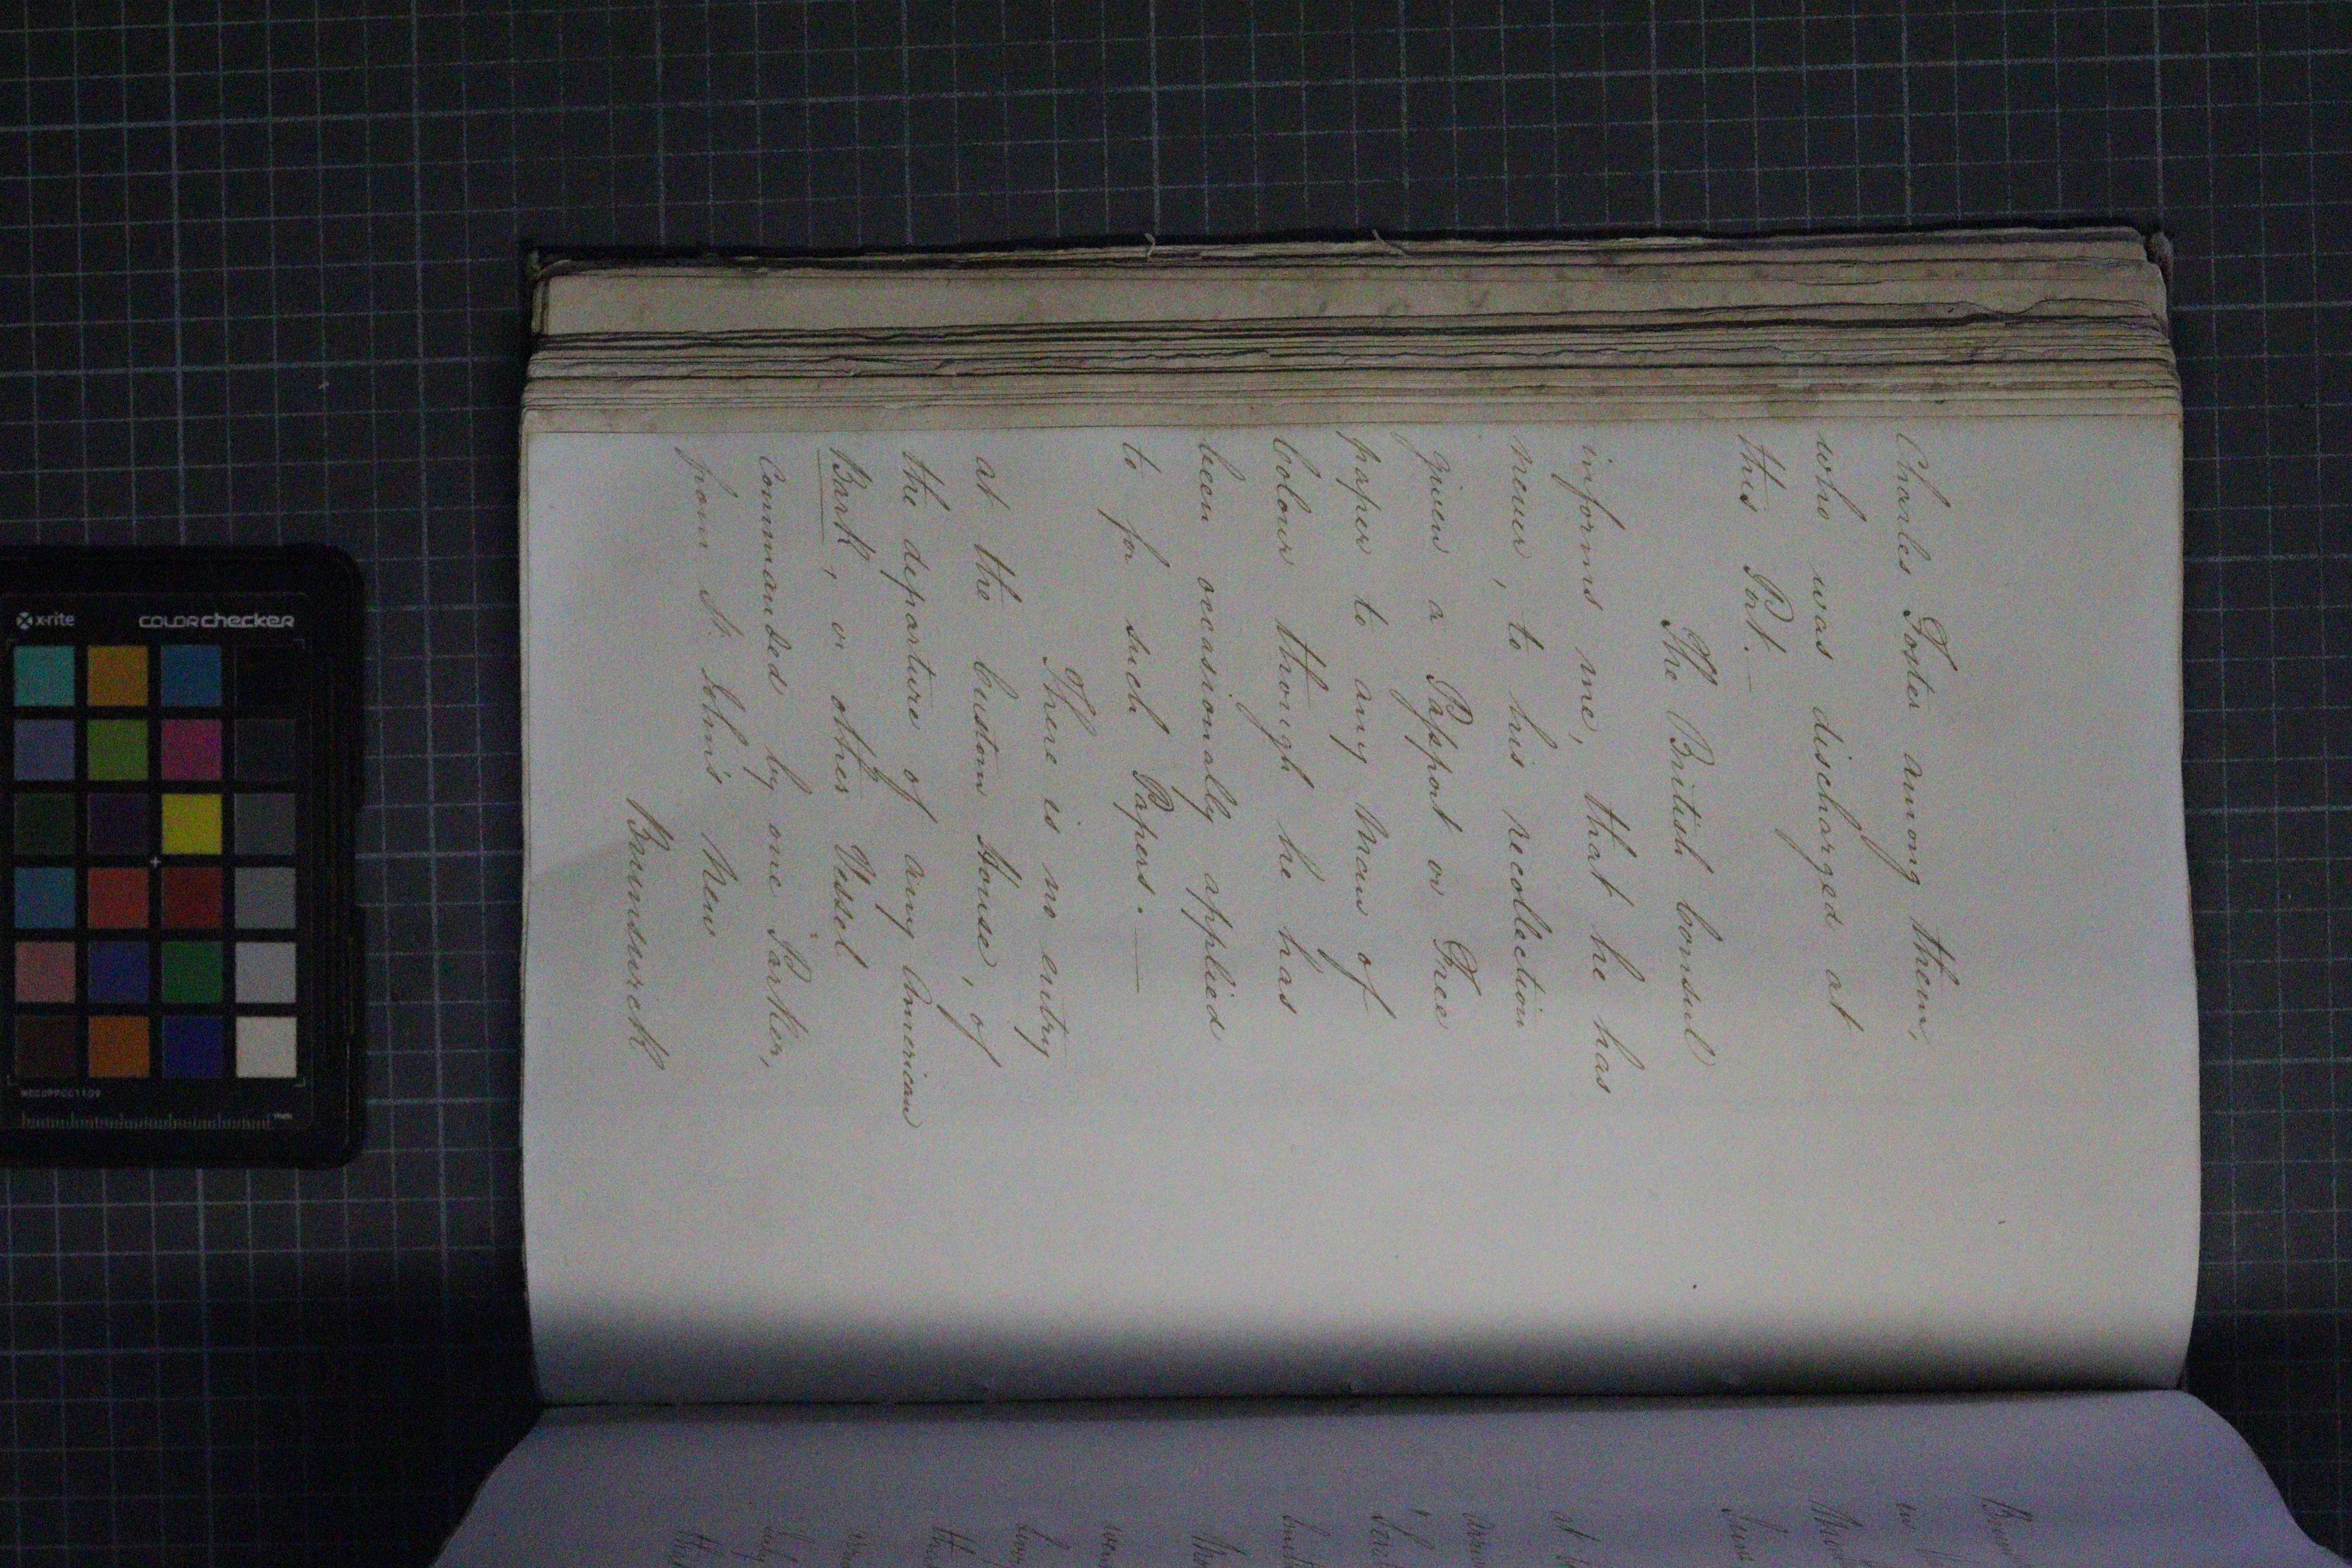 Charles Foster among them,
who was discharged at
this Port.—
The British Consul
informs me, that he has
never, to his recollection
given a Passport or Free
paper to any Man of
Colour though he has
been occassionally applied
to for such Papers.—
There is no entry
at the Custom House, of
the departure of any American
Bark, or other Vessel
Commanded by one Parker,
from St. John's New
Brunswick
x-rite
colorchecker